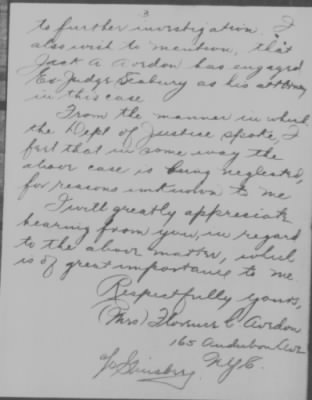 3
to further investigation. I
also wish to mention, that
Jack A. Avedon has engaged
Ex-Judge Seabury as his attorney
in this case
From the manner in which
the Dept of Justice spoke, I
feel that in some way the
above case is being neglected,
for reasons unknown to me
I will greatly appreciate
hearing from you, in regard
to the above matter, which
is of great importance to me.
Respectfully yours,
(Mrs) C. Avedon
165 Audubon Ave
N.Y.C.
Ginsberg